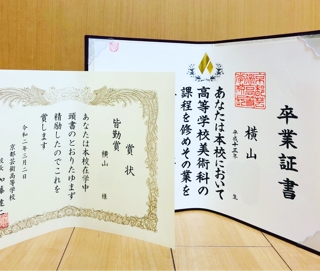 卒業証書
横山
平成十三年
生
あなたは本校において
高等学校美術科の
課程を修めその業を
賞状
皆勤賞
横山
様
あなたは本校在学中
頭書のとおりたゆまず
精励したのでこれを
賞します
令和二年三月二日
京都芸術高等学校
校長